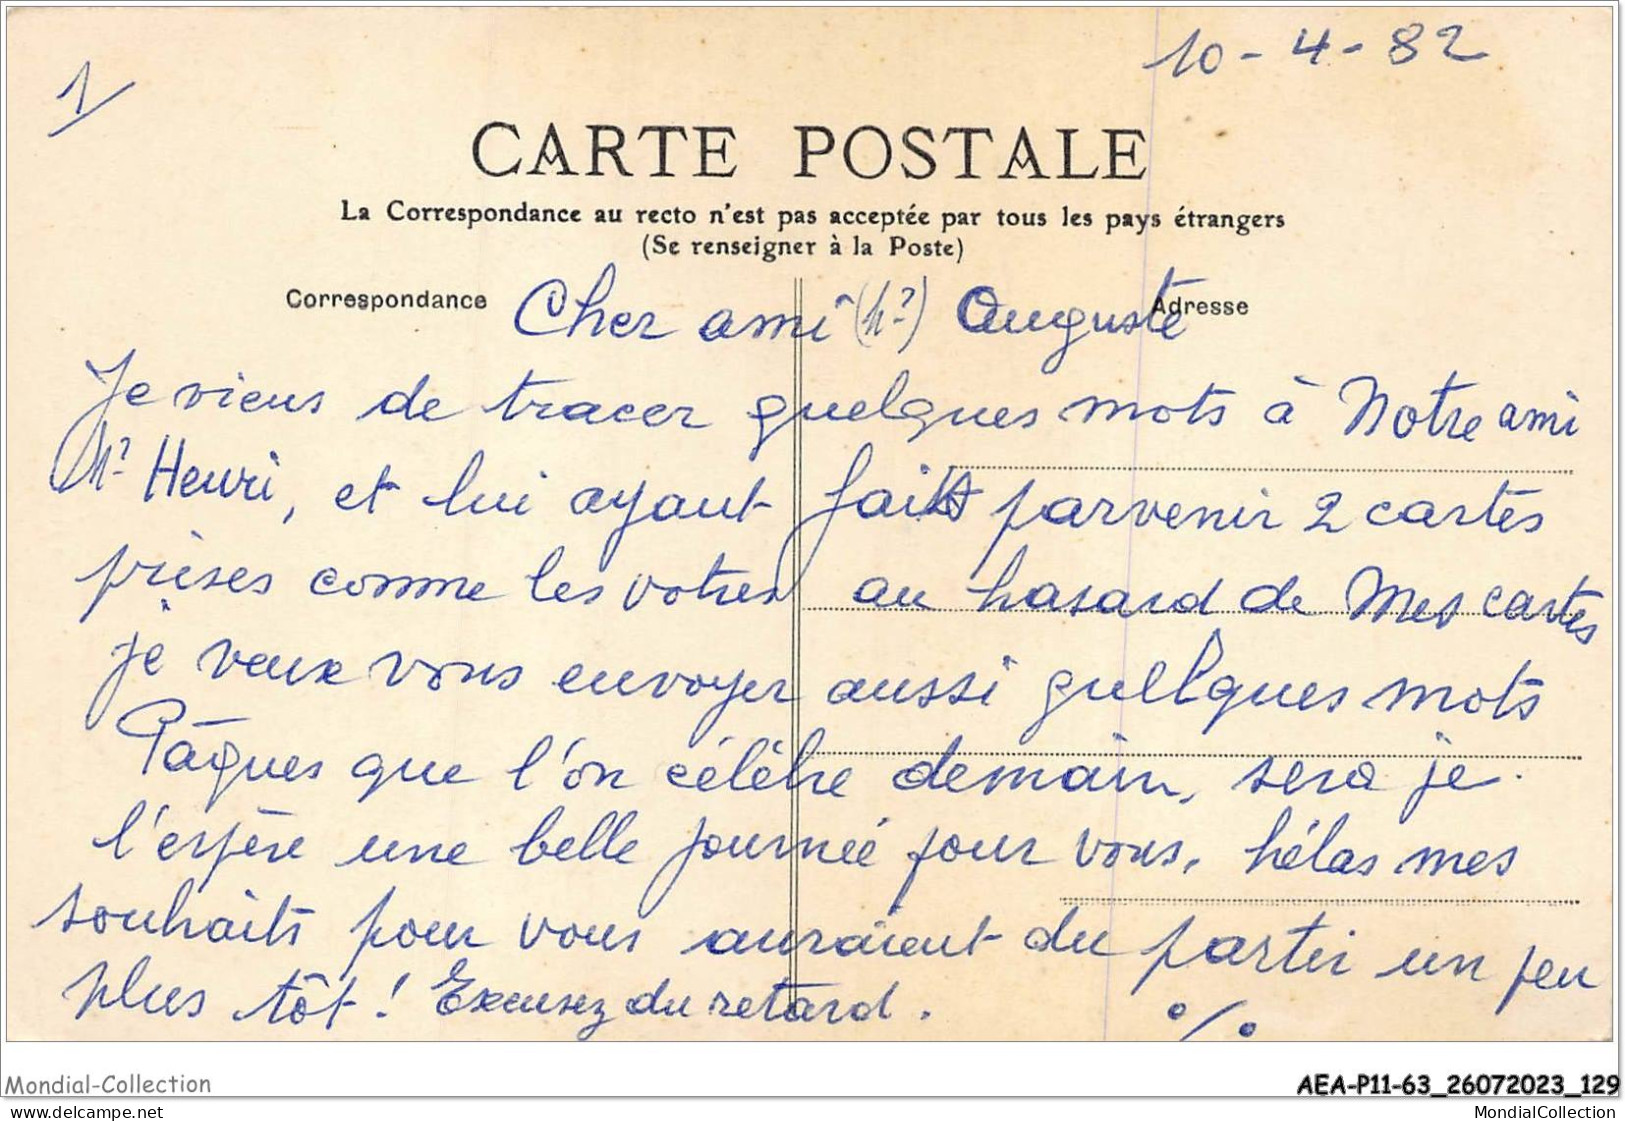 10-4-82
1
CARTE POSTALE
La Correspondance au recto n'est pas acceptée par tous les pays étrangers
(Se renseigner à la Poste)
Correspondance
Adresse
Cher ami (h?) Auguste
Je viens de tracer quelques mots à Notre ami
h? Henri, et lui ayant fait parvenir 2 cartes
prises comme les votres au hasard de Mes cartes
je veux vous envoyer aussi quelques mots
Pâques que l'on célèbre demain, sera je
l'espère une belle journée pour vous, hélas mes
souhaits pour vous auraient du partir un peu
plus tôt! Excusez du retard.
•/•
Mondial-Collection
AEA-P11-63_26072023_129
delcampe.net
MondialCollection